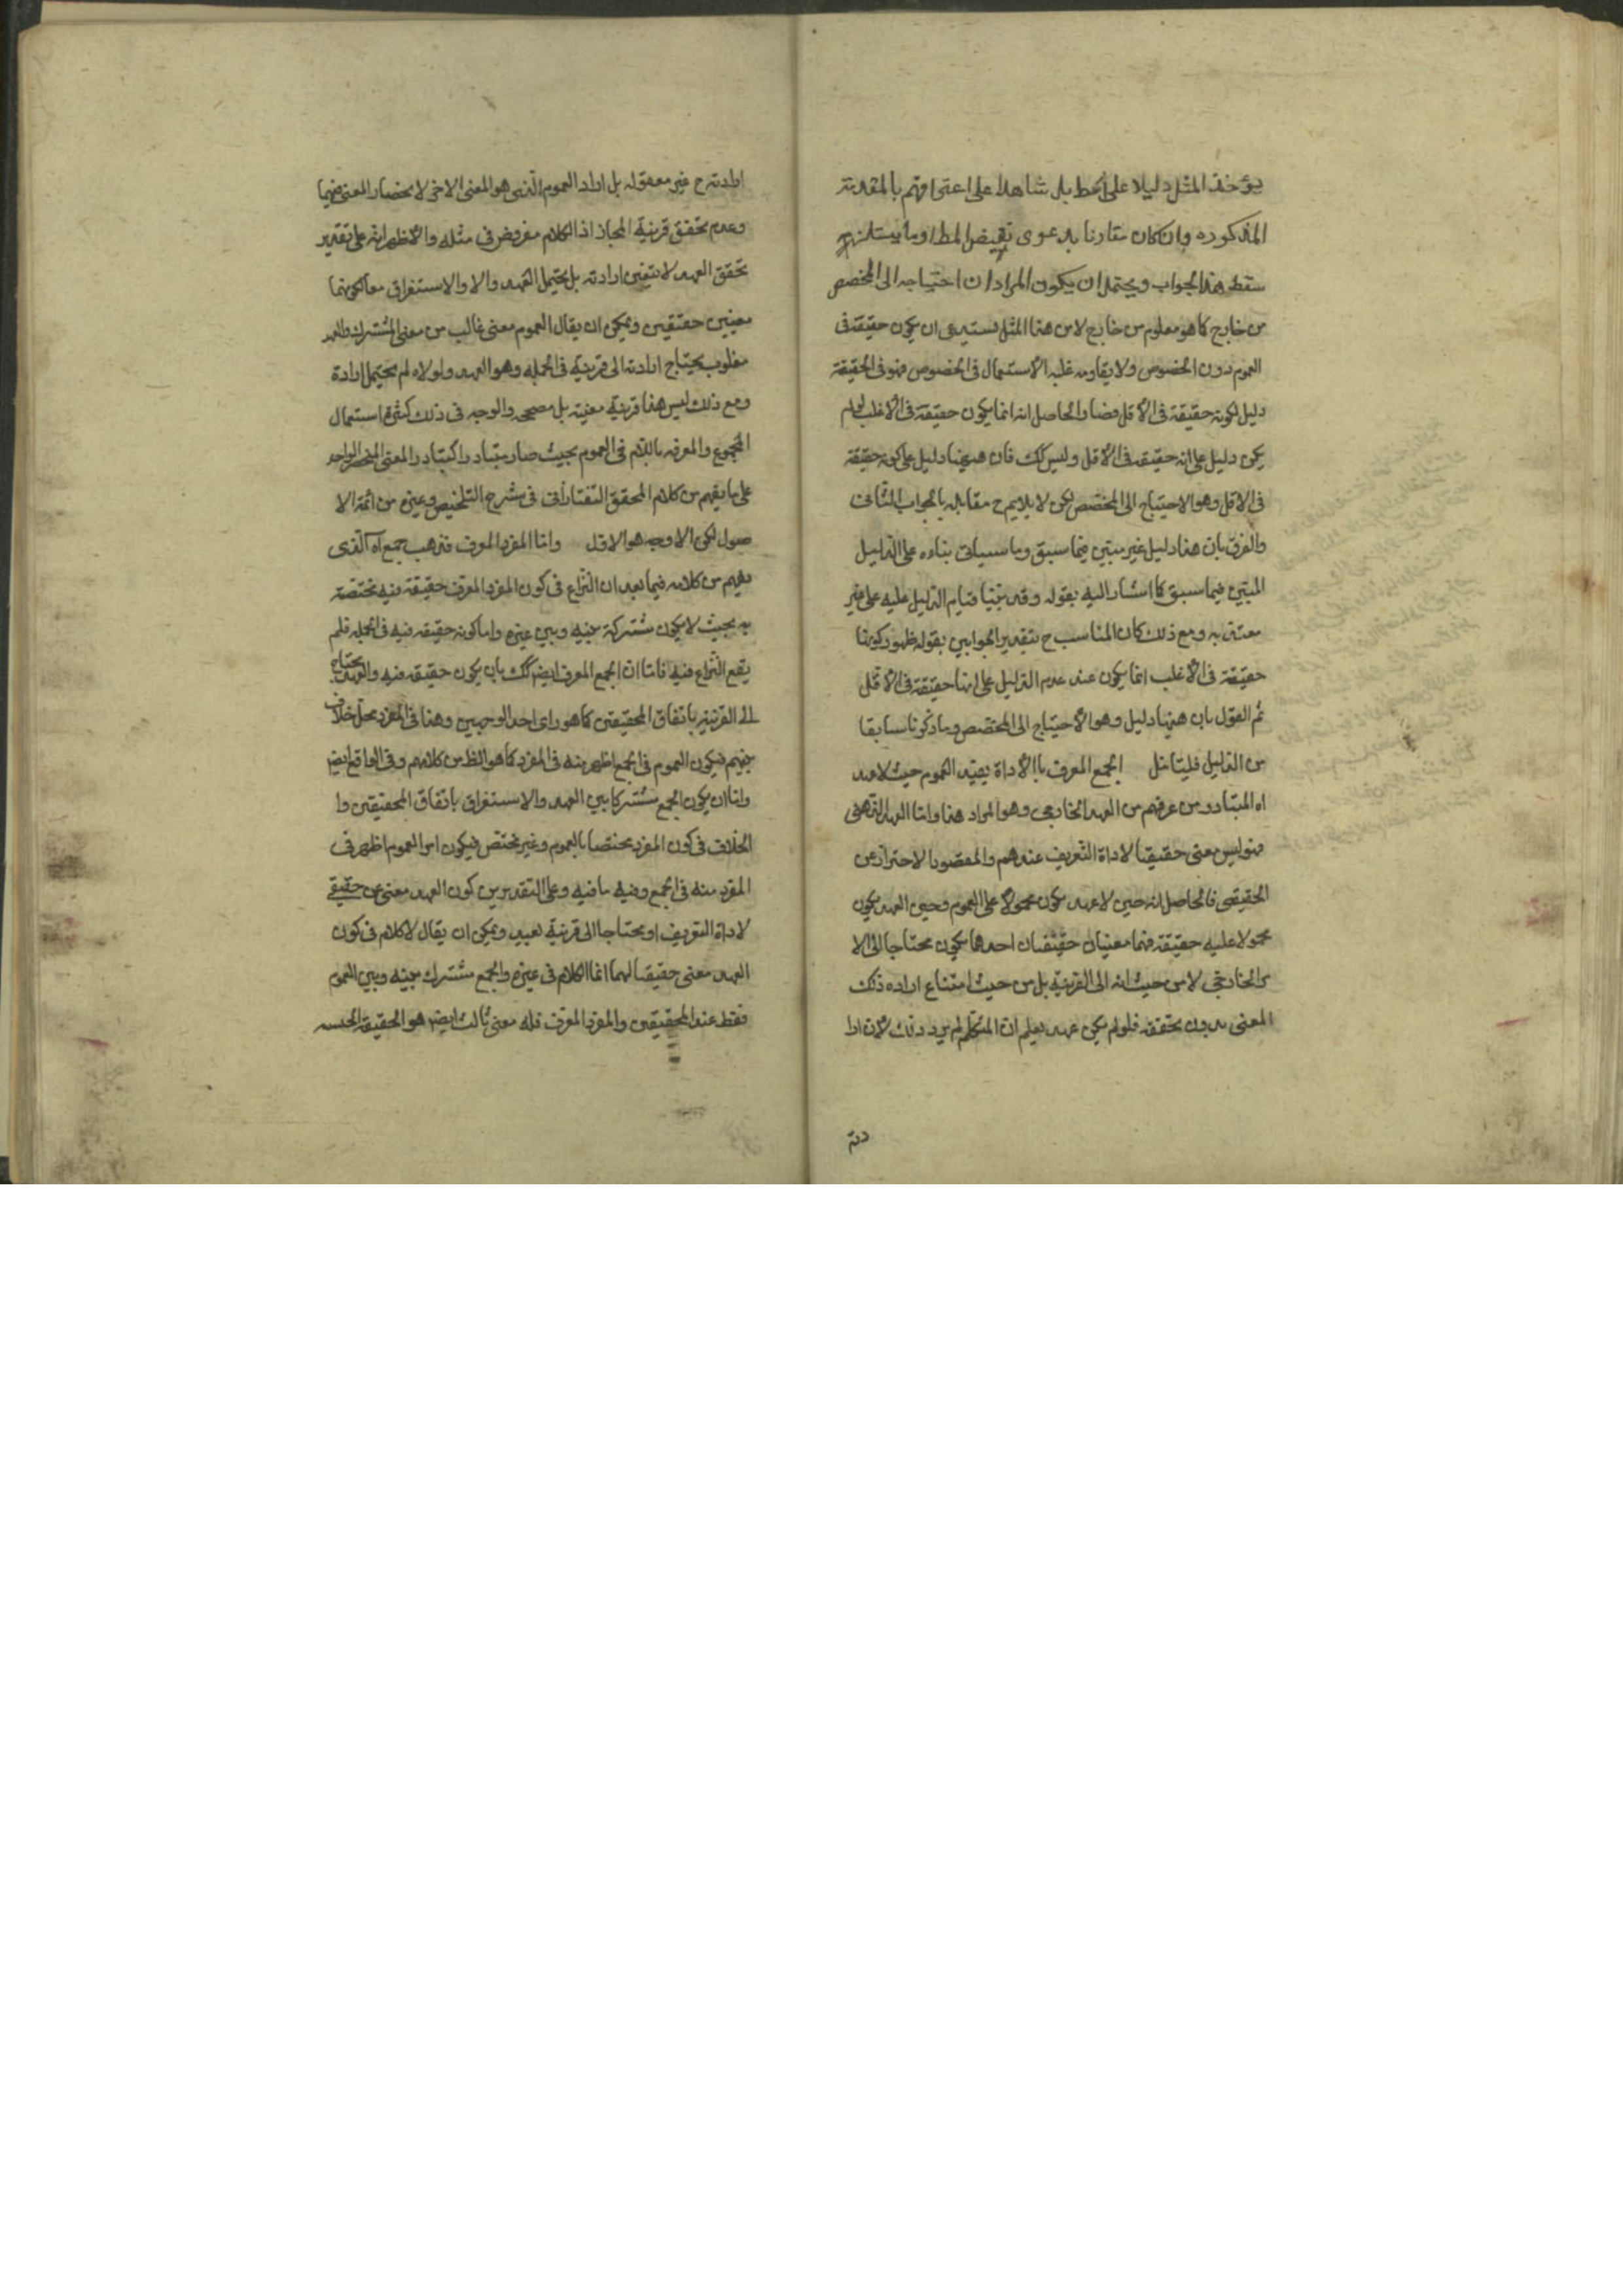 يؤخذ المثل دليلا على المط بل شاهدا على اعترافهم بالمقدمة
المذكوره وان كان مقارنا بدعوى نقيض المط او ما يستلزمه
سقط هذا الجواب ويحتمل ان يكون المراد ان احتياجه الى المخصص
من خارج كما هو معلوم من خارج لا من هذا المثل يستدعى ان يكون حقيقة فى
العموم دون الخصوص ولا يقاومه غلبه الاستعمال فى الخصوص فهو فى الحقيقة
دليل لكونه حقيقة فى الاقل فصار الحاصل انه انما يكون حقيقة فى الاغلب لو لم
يكن دليل على انه حقيقة فى الاقل وليس كك فان هيهنا دليل على كونه حقيقة
فى الاقل وهو الاحتياج الى المخصص لكن لا يلايم ح مقابله بالجواب الثانى
والفرق بان هذا دليل غير مبتنى فيما سبق وما سياتى بناءه على الدليل
المبتنى فيما سبق كما اشار اليه بقوله وقد بينا قيام الدليل عليه على غير
معتنى به ومع ذلك كان المناسب ح تقدير الجوابين بقوله ظهور كونها
حقيقة فى الاغلب انما يكون عند عدم الدليل على انها حقيقة فى الاقل
ثم القول بان هيهنا دليل وهو الاحتياج الى المخصص وما ذكرنا سابقا
من الدليل فليتامل الجمع المعرف باالاداة يفيد العموم حيث لا عهد
اه المتبادر من عرفهم من العهد الخارجى وهو المراد هنا واما العهد الذهنى
فهو ليس معنى حقيقيا لاداة التعريف عندهم والمقصود الاحتراز عن
الحقيقى فالحاصل انه حين لا عهد يكون محمولا على العموم وحين العهد يكون
محمولا عليه حقيقة فهما معنيان حقيقيان احدهما يكون محتاجا الى الا
مر الخارجى لا من حيث انه الى القرينة بل من حيث امتناع اراده ذلك
المعنى بدون تحققه فلو لم يكن عهد يعلم ان المتكلم لم يرد ذلك لان ارا
دته
ارادته ح غير معقوله بل اراد العموم الذى هو المعنى الاخر لانحصار المعنى فيهما
وعدم تحقق قرينة المجاز اذ الكلام مفروض فى مثله والاظهر انه على تقدير
تحقق العهد لا يتعين ارادته بل يحتمل العهد والا والاستغراق معا لكونهما
معنيين حقيقيين ويمكن ان يقال العموم معنى غالب من معنى المشترك والعهد
مغلوب يحتاج ارادته الى قرينة فى الجمله وهو العهد ولولاه لم يحتمل ارادة
ومع ذلك ليس هذا قرينة معينة بل مصححه والوجه فى ذلك كثرة استعمال
المجموع والمعرفه باللام فى العموم بحيث صار متبادرا كتبادر المعنى المنحصر الواحد
على ما يفهم من كلام المحقق التفتازانى فى شرح التلخيص وغيره من ائمة الا
صول لكن الاوجه هو الاول واما المفرد المعرف فذهب جمع اه الذى
يفهم من كلامه فيما بعد ان النزاع فى كون المفرد المعرف حقيقة فيه مختصة
به بحيث لا يكون مشتركة بينه وبين غيره واما كونه حقيقه فيه فى الجمله فلم
يقع النزاع فيه فاما ان الجمع المعرف ايضا كك بان يكون حقيقه فيه والعهد يحتاج
الى القرينه باتفاق المحققين كما هو راى احد الوجهين وهذا فى المفرد محل خلاف
بينهم فيكون العموم فى الجمع اظهر منه فى المفرد كما هو الظ من كلامهم وفى الواقع ايضا
واما ان يكون الجمع مشتركا بين العهد والاستغراق باتفاق المحققين وا
الخلاف فى كون المفرد مختصا بالعموم وغير مختص فيكون امر العموم اظهر فى
المفرد منه فى الجمع وفيه ما فيه وعلى التقديرين كون العهد معنى غير حقيقى
لاداة التعريف او محتاجا الى قرينة بعيد ويمكن ان يقال لا كلام فى كون
العهد معنى حقيقيا لهما انما الكلام فى غيره والجمع مشترك بينه وبين العموم
فقط عند المحققين والمفرد المعرف فله معنى ثالث ايضا هو الحقيقة الجنسيه